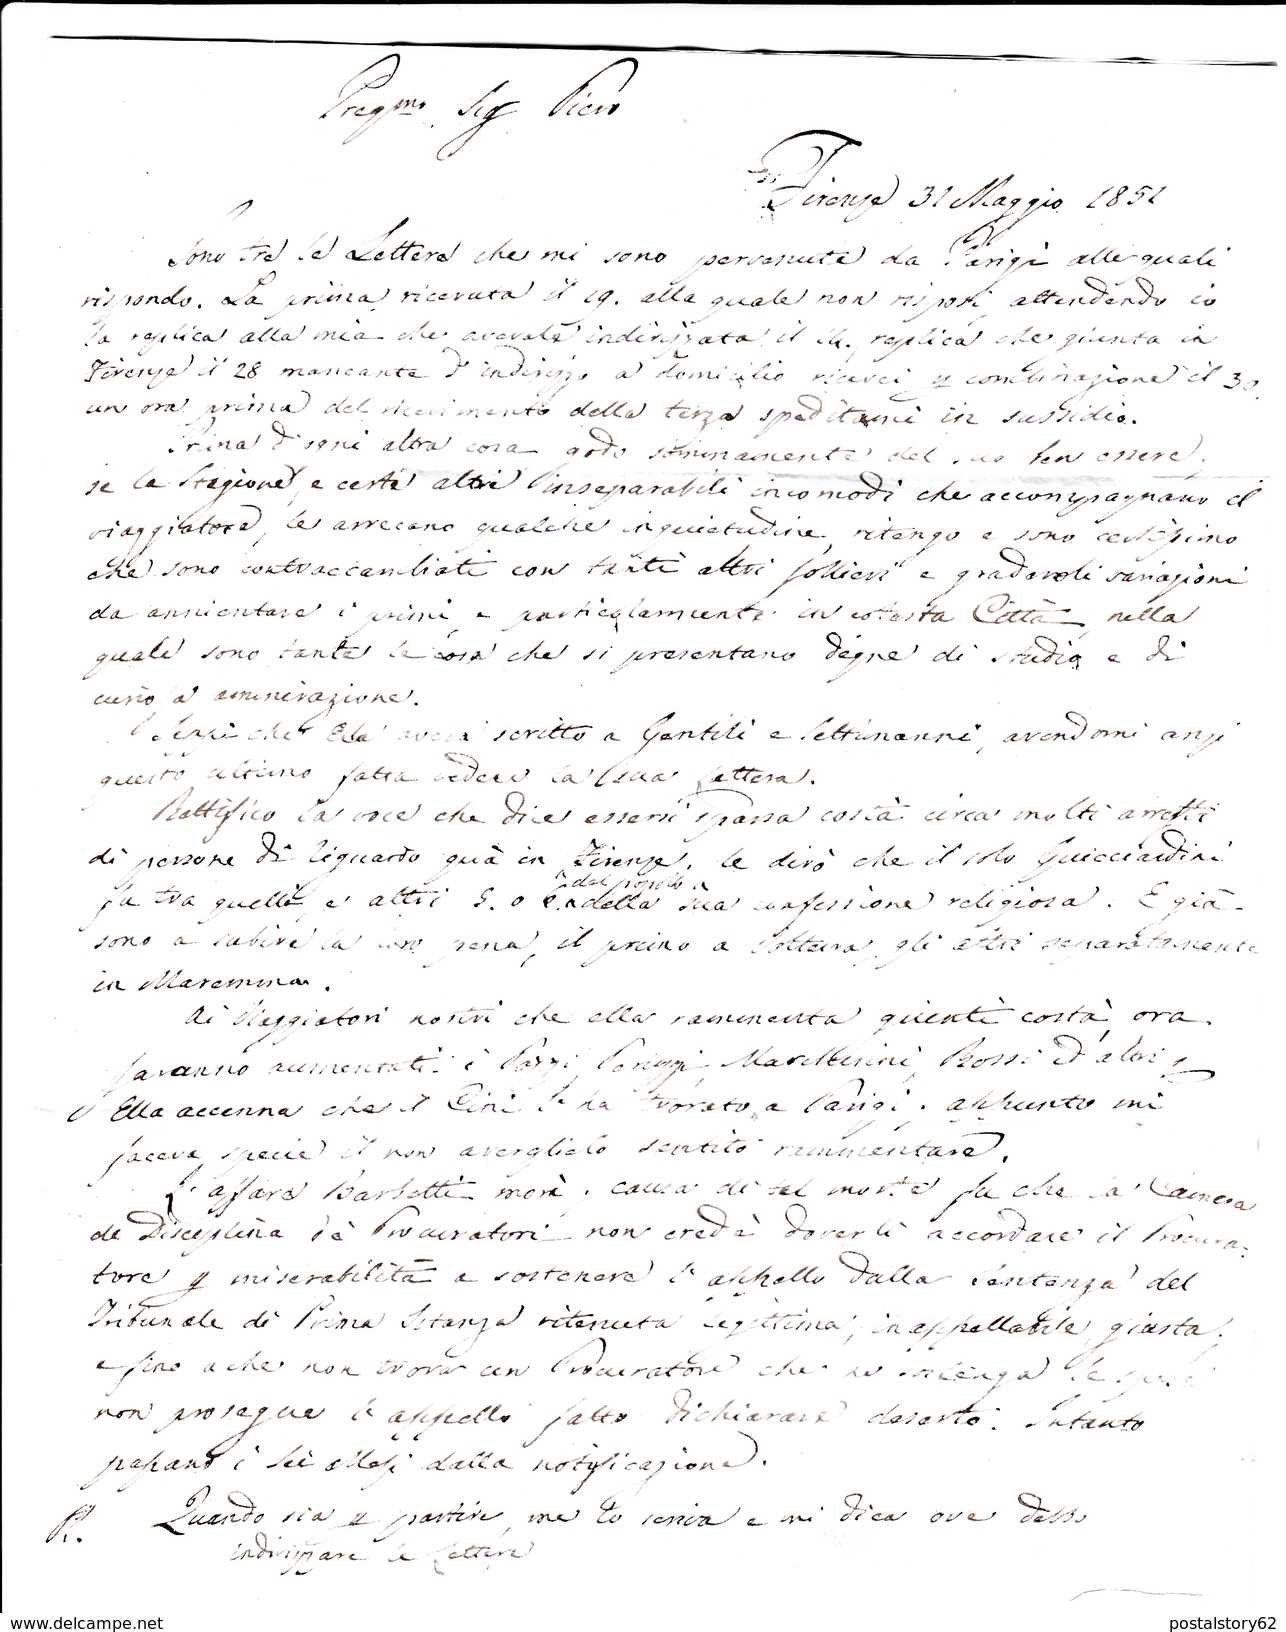 Pregmo Sig Piero
Firenze 31 Maggio 1851
Sono tre le Lettere che mi sono pervenute da Parigi alle quali
rispondo. La prima ricevuta il 19. alla quale non risposi, attendendo io
la replica alla mia che avevale indirizzata il 14. replica che giunta in
Firenze il 28 mancante d'indirizzo a domicilio ricevei p combinazione il 30.
un ora prima del ricevimento della terza speditami in sussidio.
Prima d'ogni altra cosa godo sommamente del suo ben essere,
se la Stagione, e certi altri inseparabili incomodi che accompagnano il
viaggiatore, le arrecano qualche inquietudine, ritengo e sono certissimo
che sono contraccambiati con tanti altri sollievi e gradevoli variazioni
da annientare i primi, e particolarmente in cotesta Città, nella
quale sono tante le cose che si presentano degne di studio e di
curiosa ammirazione.
Seppi che Ella aveva scritto a Gentili e Settimanni, avendomi anzi
questo ultimo fatta vedere la sua Lettera.
Rettifico la voce che dice essersi sparsa costà circa molti arresti
di persone di riguardo quà in Firenze. le dirò che il solo Guicciardini
fu tra quelli, e altri 5. o 6. della sua confessione religiosa. E già
del popolo
sono a subire la loro pena, il primo a Volterra, gli altri separatamente
in Maremma.
Ai Viaggiatori nostri che ella rammenta giunti costà, ora
saranno aumentati: i Pazzi, Peruzzi, Marchesini, Rossi ed altri
Ella accenna che il Cini l'ha trovato a Parigi. appunto mi
faceva specie il non averglielo sentito rammentare.
L'affare Barbetti morì. causa di tal morte fu che la Camera
de Disciplina de Procuratori non credè doverli accordare il Procura=
tore p miserabilità a sostenere l'appello dalla Sentenza del
Tribunale di Prima Istanza ritenuta legittima, inappellabile giusta,
e fino a che non trova un Procuratore che ne sostenga le spese
non prosegue l'appello fatto dichiarare deserto. Intanto
passano i sei Mesi dalla notificazione.
Ps. Quando sia p partire, me lo scriva e mi dica ove debbo
indirizzare le Lettere
www.delcampe.net
postalstory62